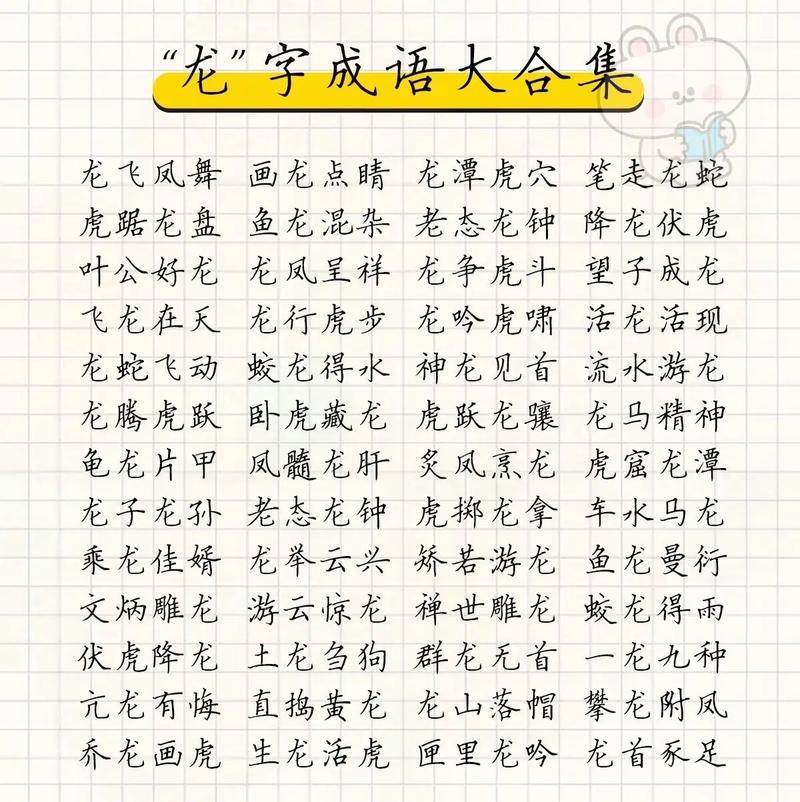 “龙”字成语大合集
龙飞凤舞 画龙点睛 龙潭虎穴 笔走龙蛇
虎踞龙盘 鱼龙混杂 老态龙钟 降龙伏虎
叶公好龙 龙凤呈祥 龙争虎斗 望子成龙
飞龙在天 龙行虎步 龙吟虎啸 活龙活现
龙蛇飞动 蛟龙得水 神龙见首 流水游龙
龙腾虎跃 卧虎藏龙 虎跃龙骧 龙马精神
龟龙片甲 凤髓龙肝 炙凤烹龙 虎窟龙潭
龙子龙孙 老态龙钟 虎掷龙拿 车水马龙
乘龙佳婿 龙举云兴 矫若游龙 鱼龙曼衍
文炳雕龙 游云惊龙 禅世雕龙 蛟龙得雨
伏虎降龙 土龙刍狗 群龙无首 一龙九种
亢龙有悔 直捣黄龙 龙山落帽 攀龙附凤
乔龙画虎 生龙活虎 匣里龙吟 龙首豕足